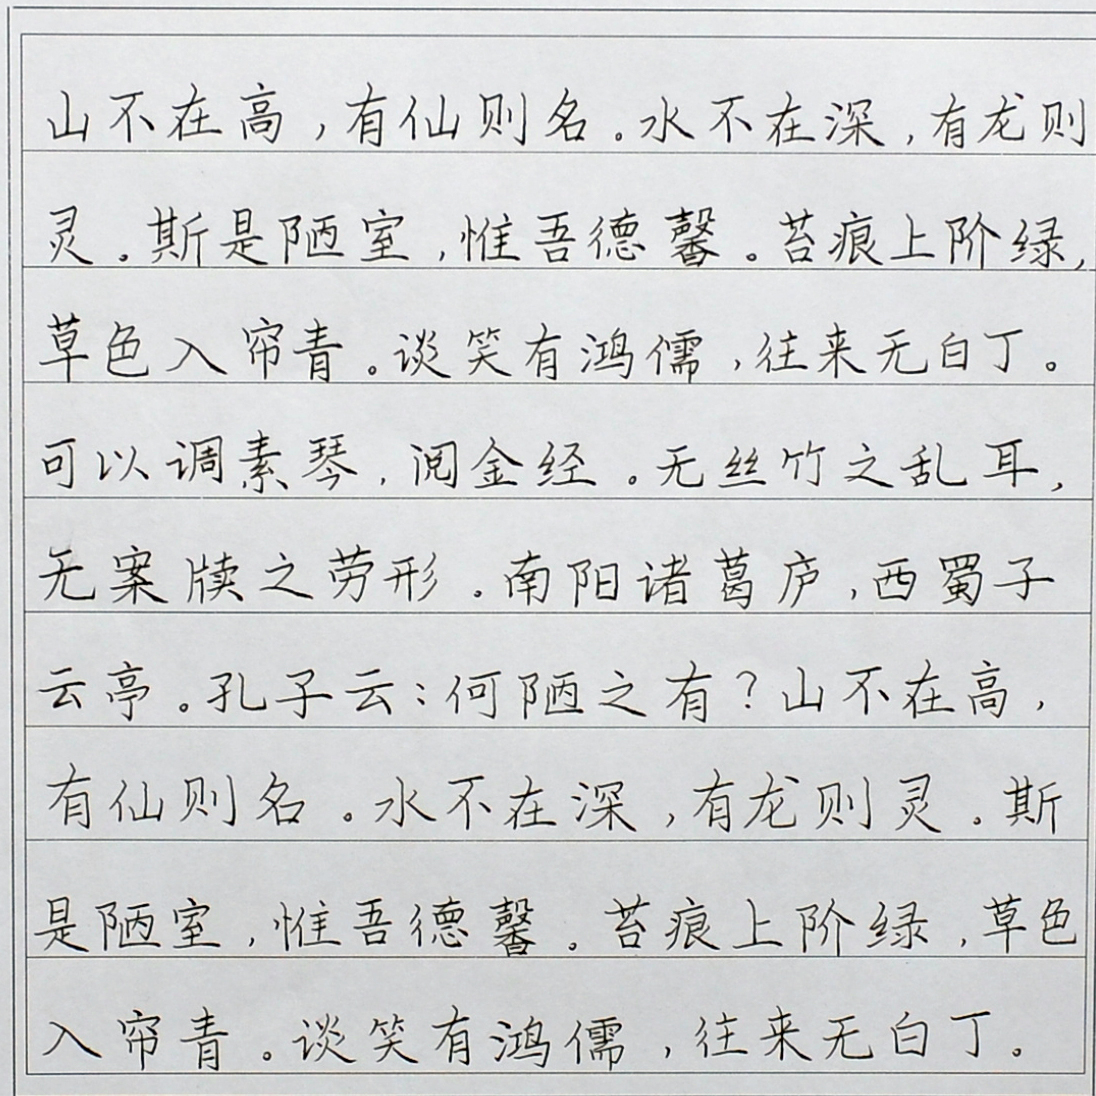 山不在高，有仙则名。水不在深，有龙则
灵。斯是陋室，惟吾德馨。苔痕上阶绿，
草色入帘青。谈笑有鸿儒，往来无白丁。
可以调素琴，阅金经。无丝竹之乱耳，
无案牍之劳形。南阳诸葛庐，西蜀子
云亭。孔子云：何陋之有？山不在高，
有仙则名。水不在深，有龙则灵。斯
是陋室，惟吾德馨。苔痕上阶绿，草色
入帘青。谈笑有鸿儒，往来无白丁。